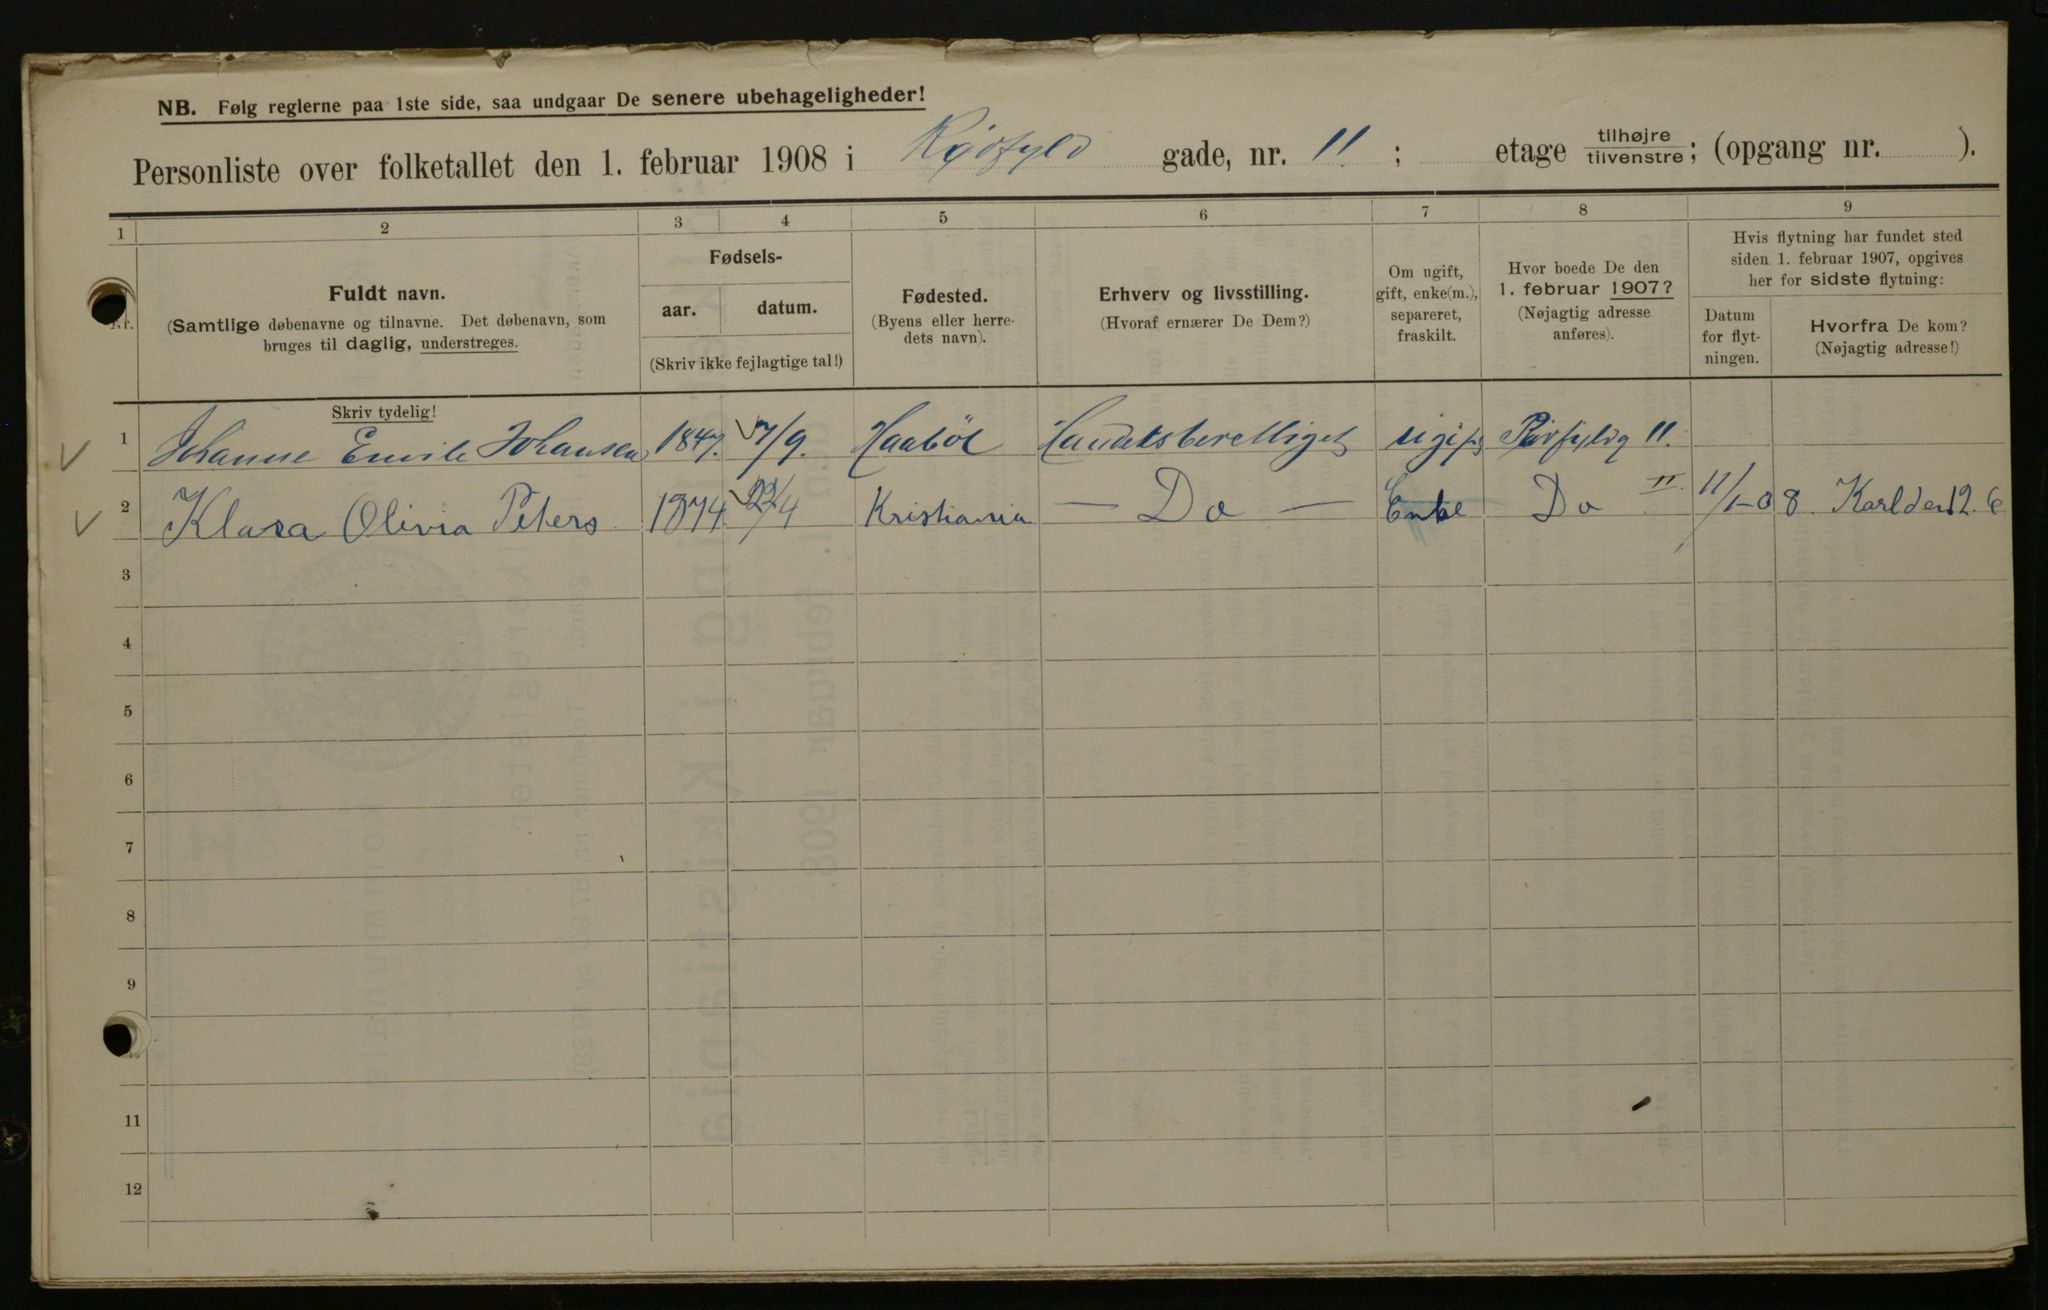 NB. Følg reglerne paa 1ste side, saa undgaar De senere ubehageligheder!
Personliste over folketallet den 1. februar 1908 i Rødfyld gade, nr. 11 ; etage tilhøjre / tilvenstre ; (opgang nr. ).
1 2 3 4 5 6 7 8 9
Nr.
Fuldt navn.
(Samtlige døbenavne og tilnavne. Det døbenavn, som
bruges til daglig, understreges.
Skriv tydelig!
Fødsels-
aar. datum.
(Skriv ikke fejlagtige tal!)
Fødested.
(Byens eller herre-
dets navn).
Erhverv og livsstilling.
(Hvoraf ernærer De Dem?)
Om ugift,
gift, enke(m.),
separeret,
fraskilt.
Hvor boede De den
1. februar 1907?
(Nøjagtig adresse
anføres).
Hvis flytning har fundet sted
siden 1. februar 1907, opgives
her for sidste flytning:
Datum
for flyt-
ningen.
Hvorfra De kom?
(Nøjagtig adresse!)
1 Johanne Emile Johansen 1847. 7/9. Haabøl Handelsberettiget ugift Rødfyldg 11.
2 Klara Olivia Peters 1874 22/4 Kristiania — Do — Enke Do 11. 11/1-08. Karlden 12. 6
3
4
5
6
7
8
9
11
12